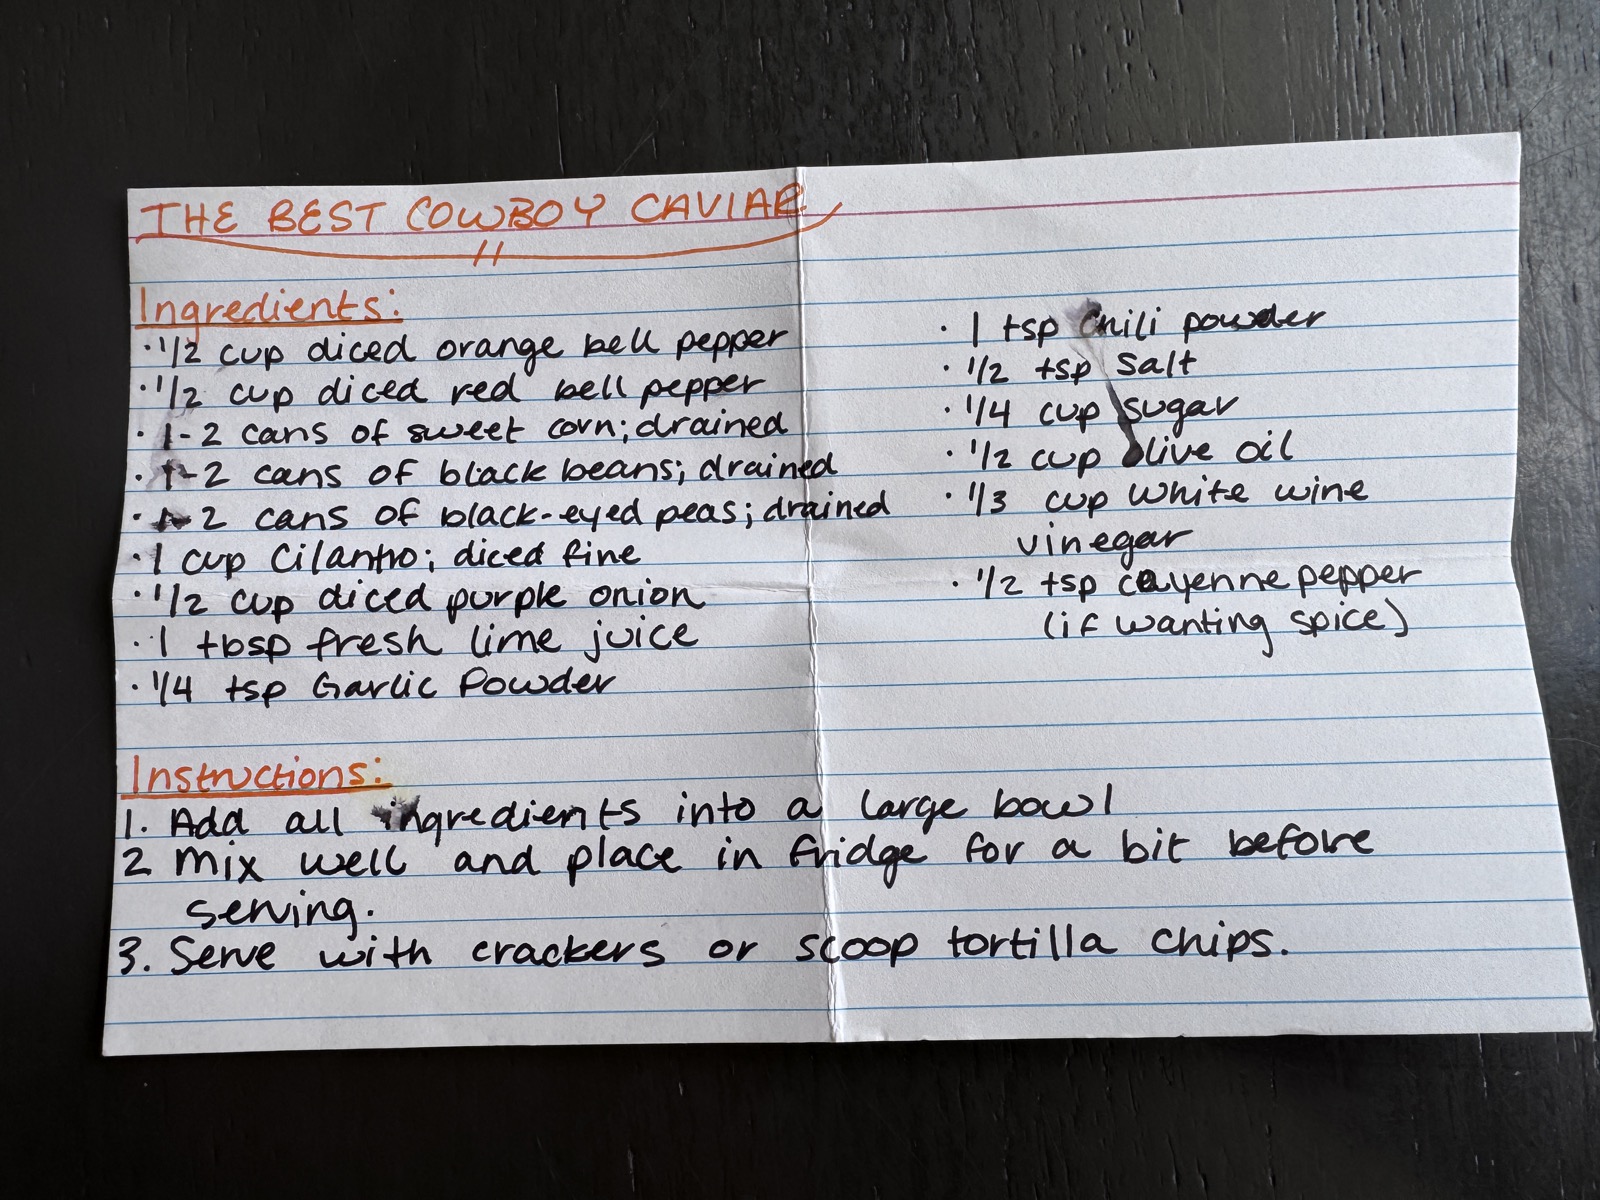 THE BEST COWBOY CAVIAR
Ingredients:
· 1/2 cup diced orange bell pepper
· 1/2 cup diced red bell pepper
· 1-2 cans of sweet corn; drained
· 1-2 cans of black beans; drained
· 1-2 cans of black-eyed peas; drained
· 1 cup Cilantro; diced fine
· 1/2 cup diced purple onion
· 1 tbsp fresh lime juice
· 1/4 tsp Garlic Powder
· 1 tsp Chili powder
· 1/2 tsp Salt
· 1/4 cup sugar
· 1/2 cup olive oil
· 1/3 cup white wine
vinegar
· 1/2 tsp cayenne pepper
(if wanting spice)
Instructions:
1. Add all ingredients into a large bowl
2 mix well and place in fridge for a bit before
serving.
3. Serve with crackers or scoop tortilla chips.